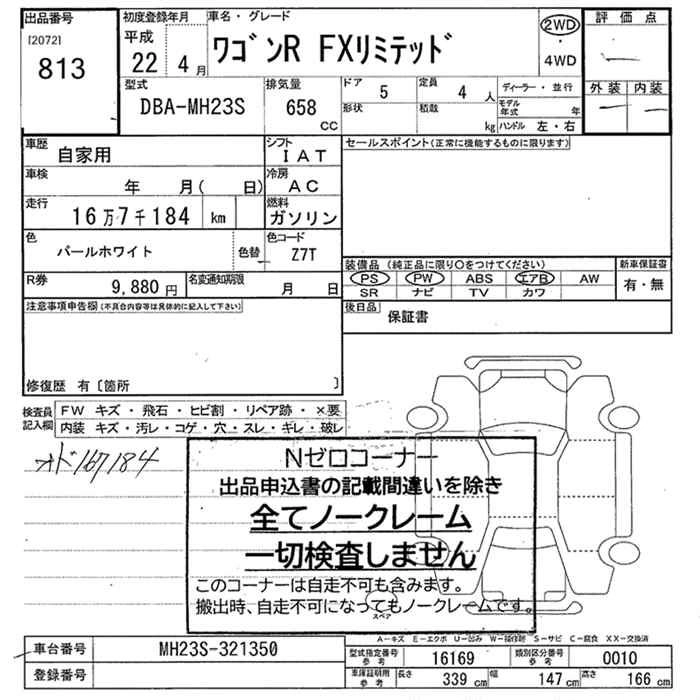 出品番号
[2072]
813
初度登録年月
平成
22 4 月
車名・グレード
ワゴンR FXリミテッド
2WD
・
4WD
評価点
外装 内装
型式
DBA-MH23S
排気量
658
CC
ドア
5
定員
4 人
形状
積載
kg
ディーラー・並行
モデル年式 年
ハンドル 左・右
車歴
自家用
シフト
IAT
セールスポイント(正常に機能するものに限ります)
車検
年 月( 日)
冷房
AC
走行
16万7千184 km
燃料
ガソリン
色
パールホワイト
色替
色コード
Z7T
装備品 (純正品に限り〇をつけてください)
PS PW ABS エアB AW
SR ナビ TV カワ
新車保証書
有・無
R券
9,880 円
名変通知期限
月 日
後日品
保証書
注意事項申告欄(不具合内容等は具体的に記入して下さい)
修復歴 有〔箇所 〕
検査員記入欄
FW キズ・飛石・ヒビ割・リペア跡・×要
内装 キズ・汚レ・コゲ・穴・スレ・キレ・破レ
オド167184
Nゼロコーナー
出品申込書の記載間違いを除き
全てノークレーム
一切検査しません
このコーナーは自走不可も含みます。
搬出時、自走不可になってもノークレームです。
スペア
A−キズ E−エクボ U−凹み W−補修跡 S−サビ C−腐食 XX−交換済
車台番号
MH23S-321350
登録番号
型式指定番号 参考
16169
類別区分番号 参考
0010
車庫証明用 参考
長さ 339 cm
幅 147 cm
高さ 166 cm